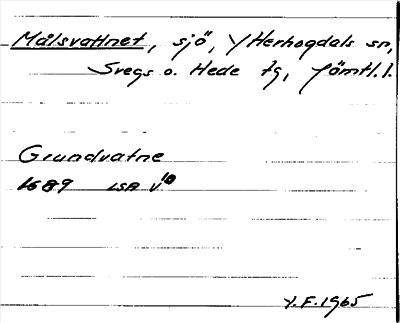 Målsvattnet, sjö, Ytterhogdals sn,
Svegs o. Hede tg, Jämtl. l.
Grundvatne
1689 LSA V 18
Y.F. 1965